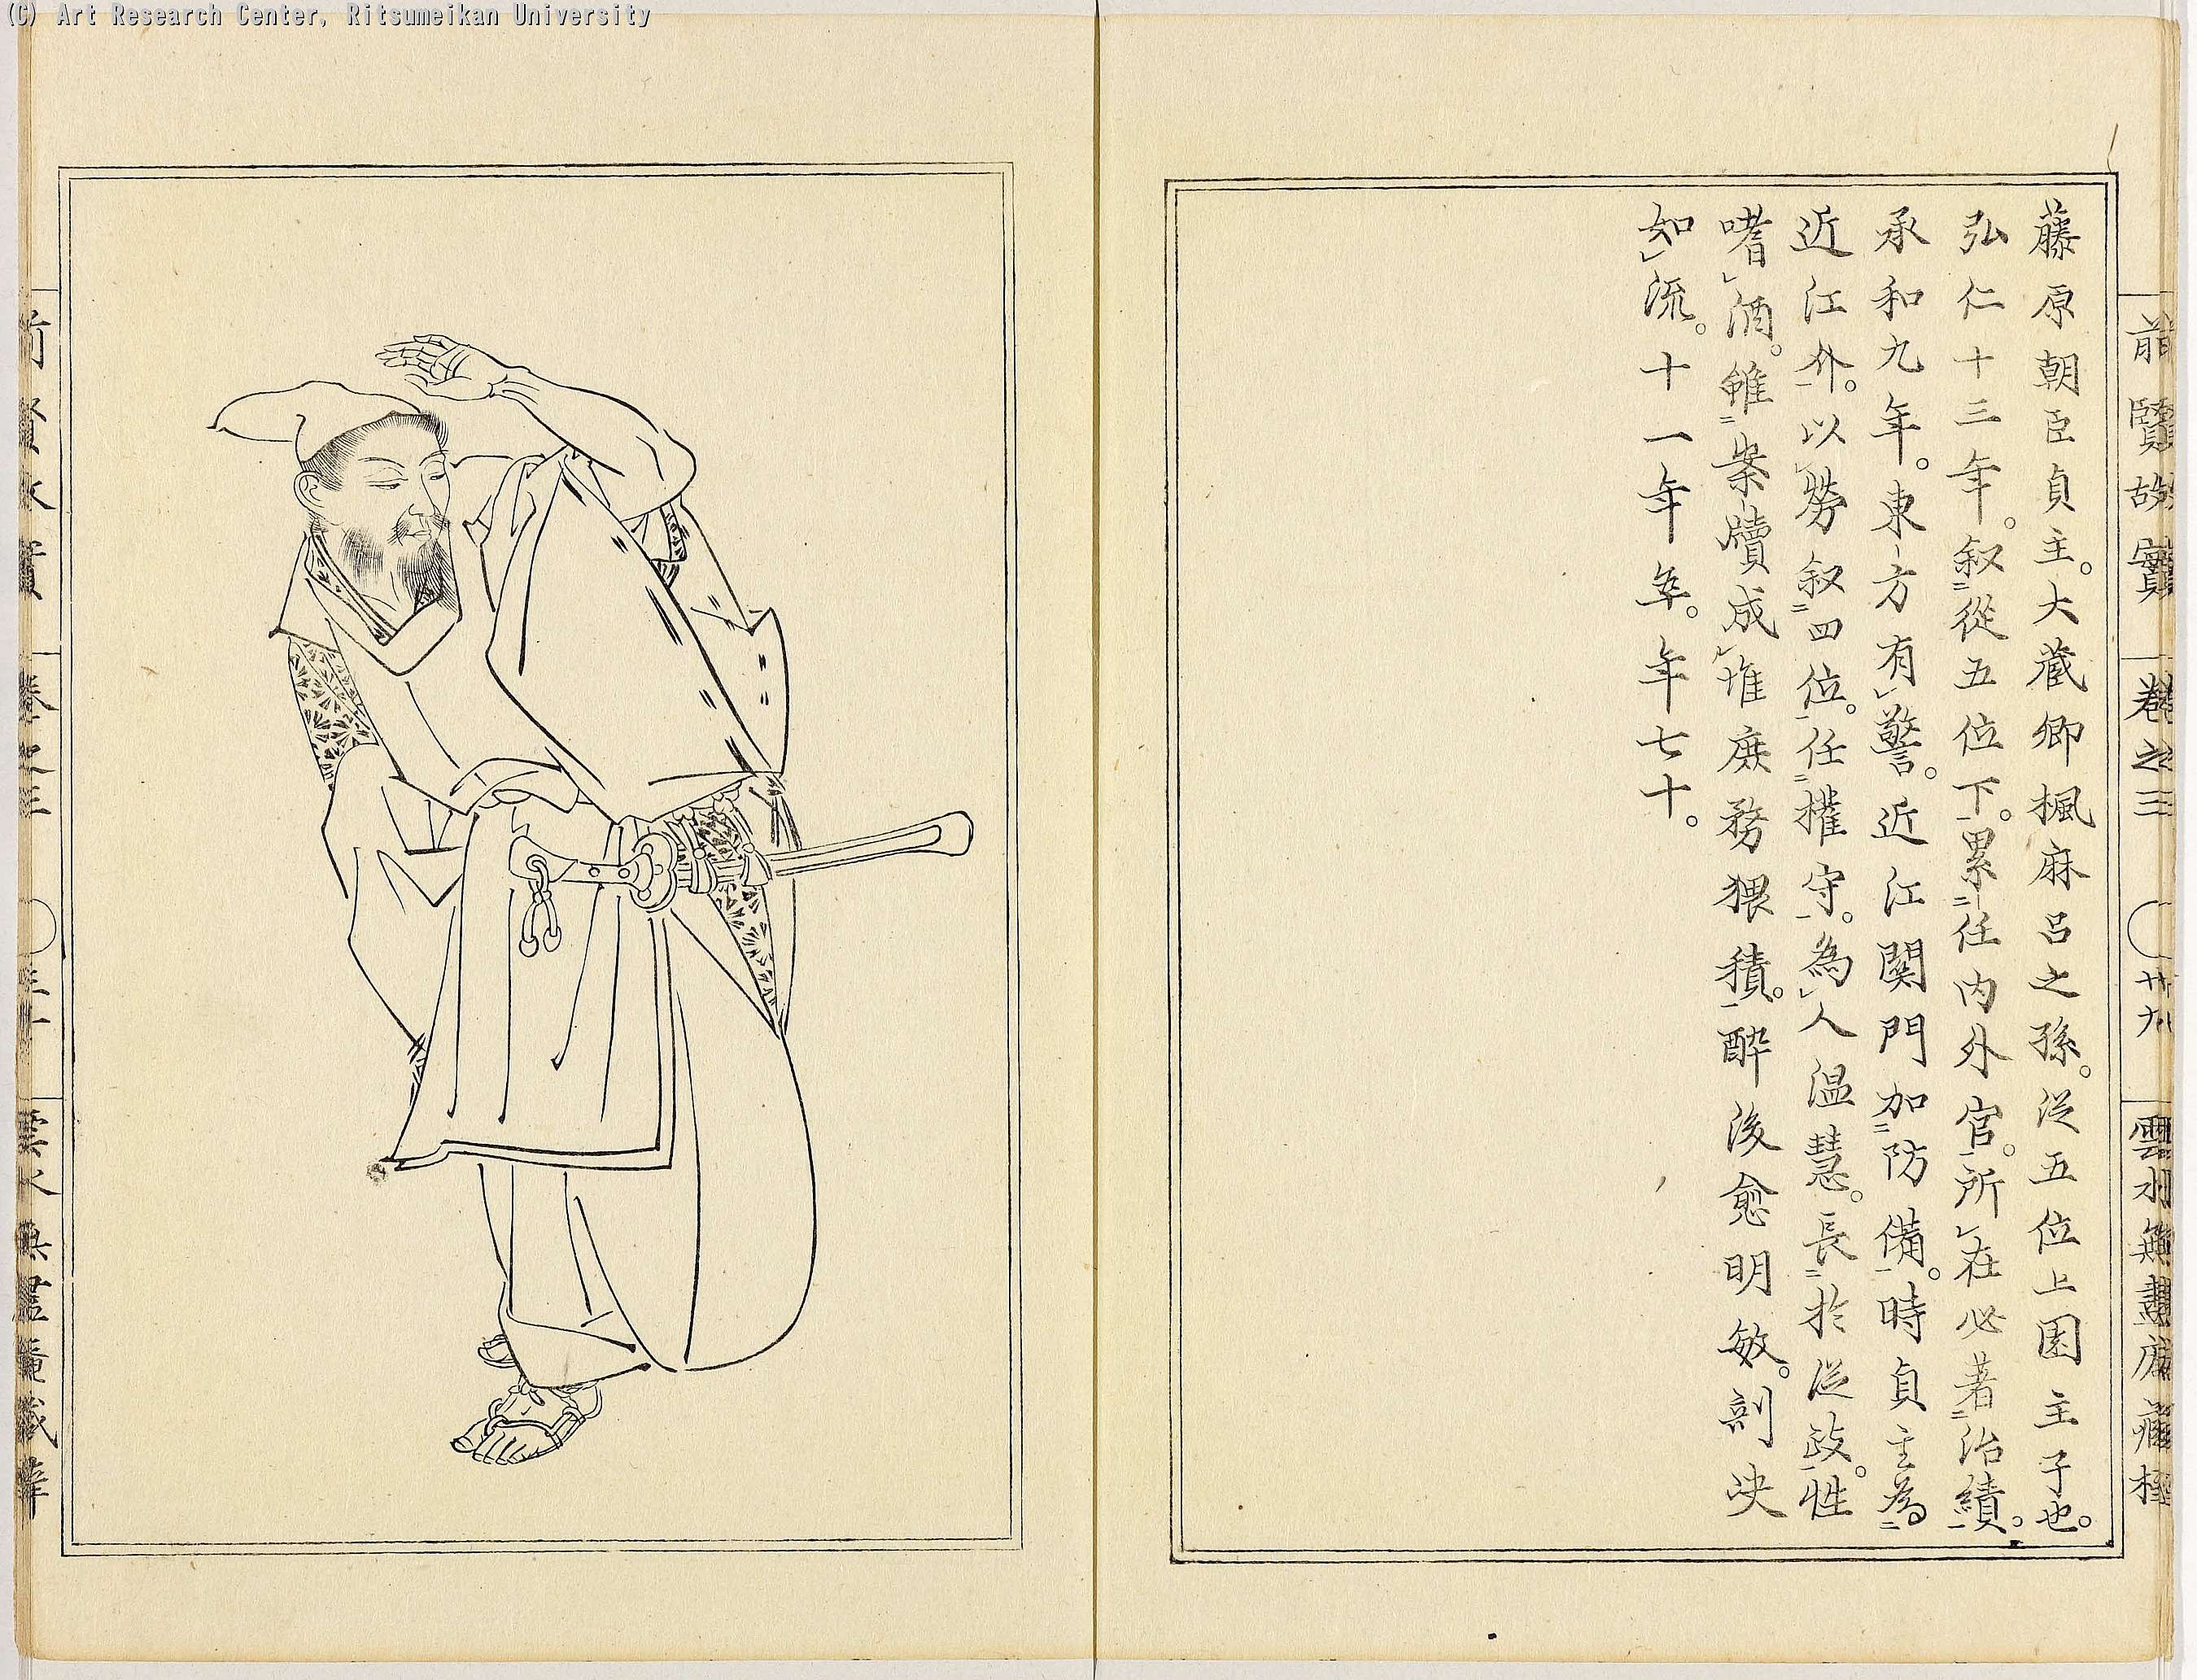 (C) Art Research Center, Ritsumeikan University
前賢故實 卷之三 〇 廿九 雲水無盡庵藏
藤原朝臣貞主。大藏卿楓麻呂之孫。從五位上園主子也。
弘仁十三年。叙從五位下。累任内外官。所在必著治績。
承和九年。東方有警。近江関門加防備。時貞主為
近江介。以勞叙四位。任權守。為人温慧。長於從政。性
嗜酒。雖案牘成堆庶務猥積。酔後愈明敏。剖决
如流。十一年卒。年七十。